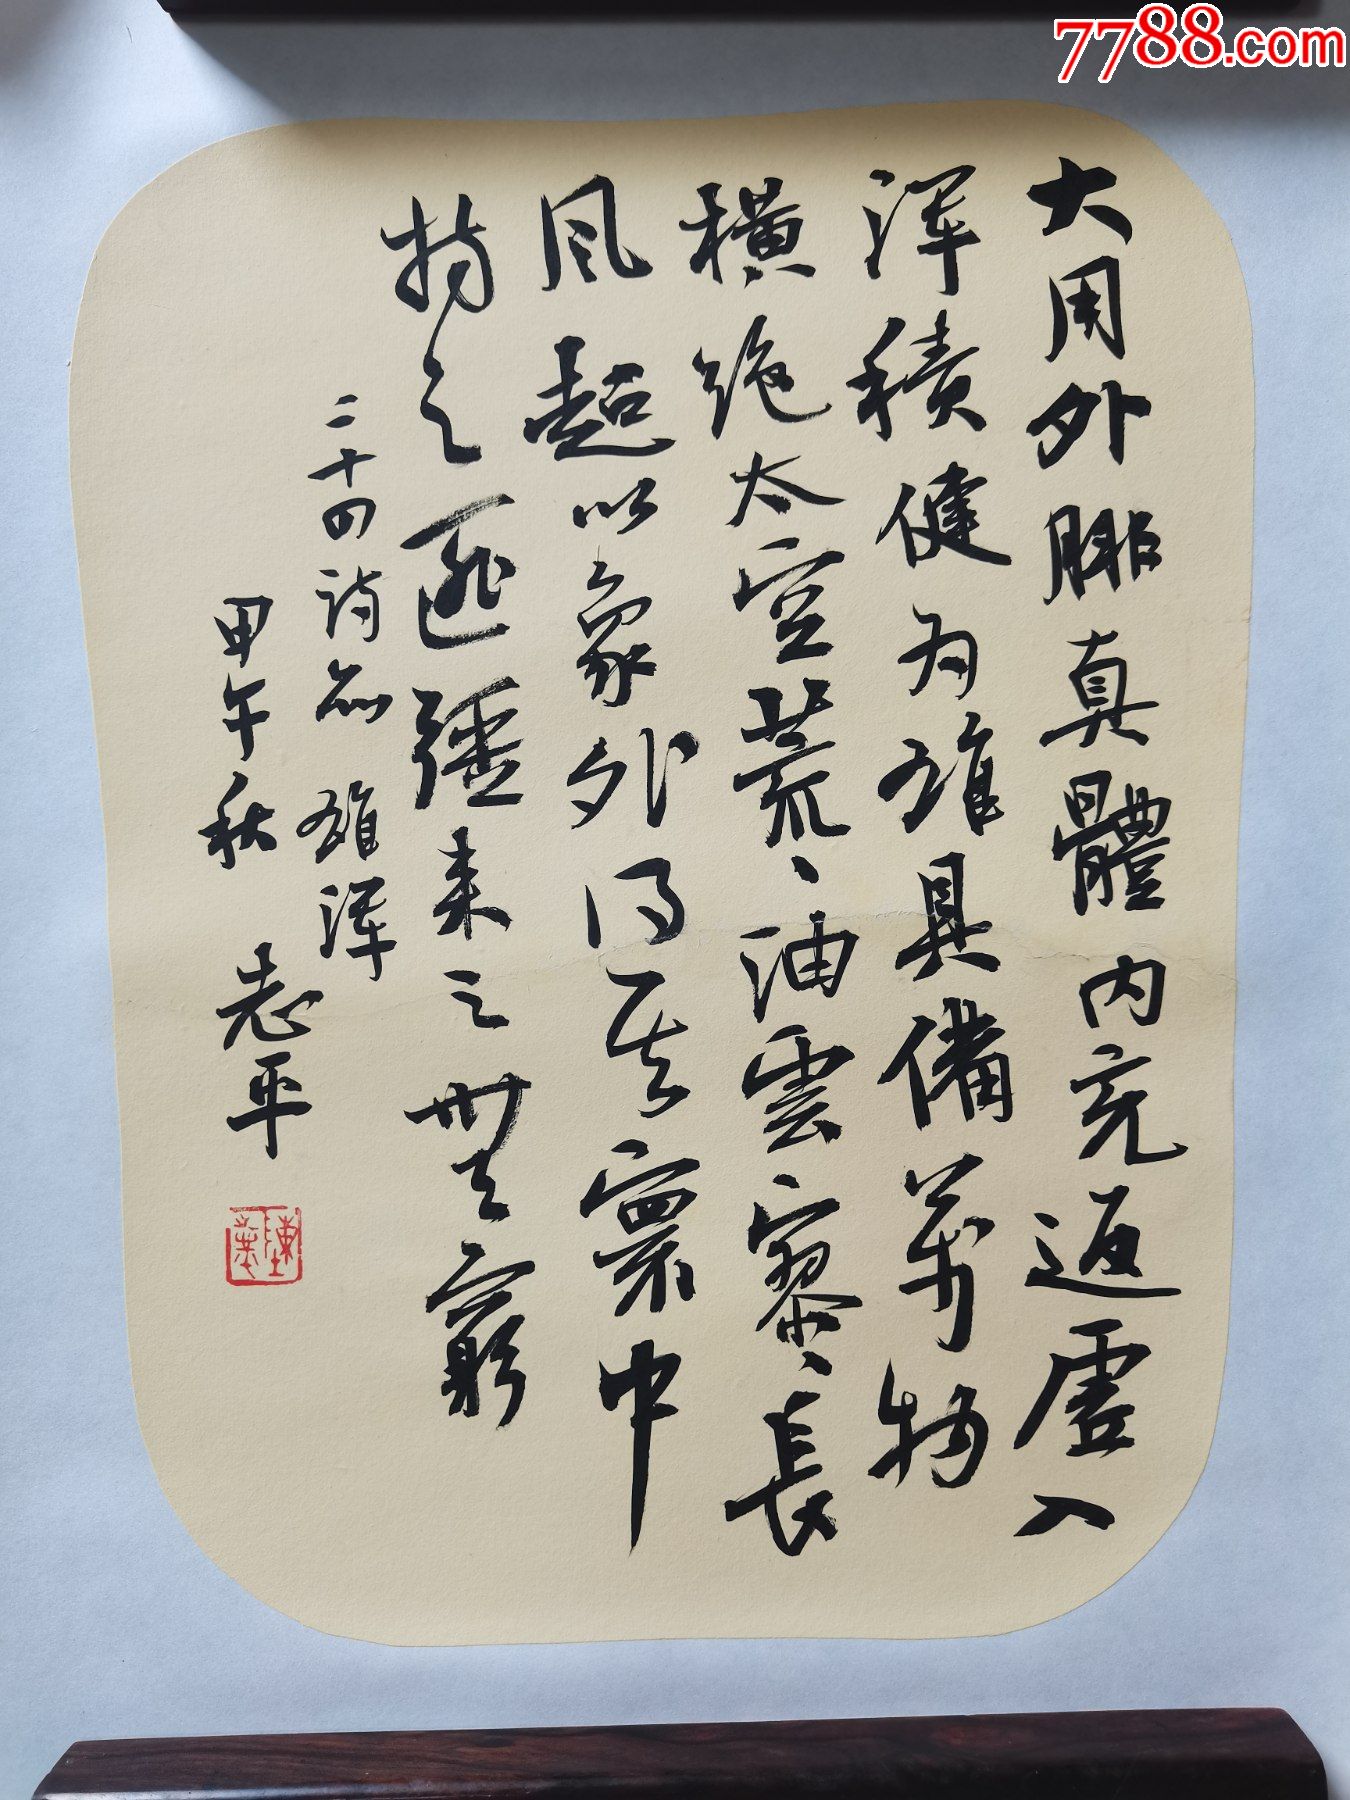 7788.com
大用外腓真體内充返虚入
浑積健为雄具備萬物
横绝太空荒、油雲寥、長
风超以象外得其寰中
持之匪强来之無窮
二十四诗品 雄浑
甲午秋 志平